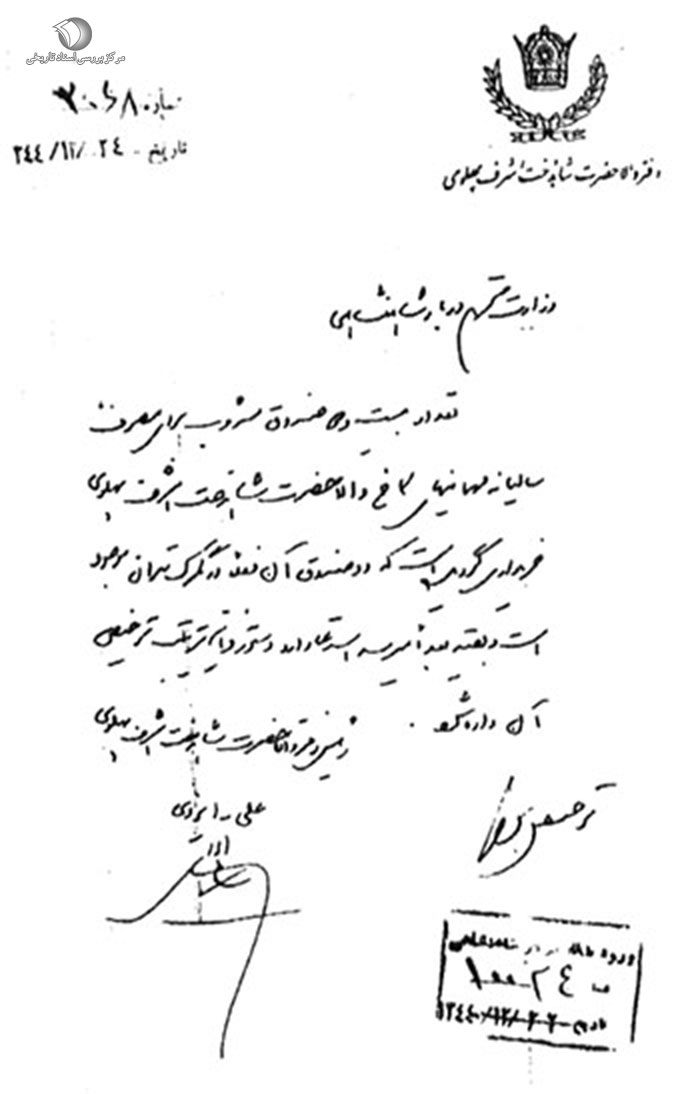 مرکز بررسی اسناد تاریخی
شماره
تاریخ - ۲۴ /۱۲/ ۲۴۴
دفتر والاحضرت شاهدخت اشرف پهلوی
وزارت محترم دربار شاهنشاهی
تعداد بیست و صندوق مشروب برای مصرف
سالیانه مهمانیهای کاخ والاحضرت شاهدخت اشرف پهلوی
خریداری گردیده است که دو صندوق آن فعلا در گمرک تهران موجود
است و بقیه بعداً میرسد استدعا دارد دستور فرمایند ترتیب ترخیص
آن داده شود .
رئیس دفتر والاحضرت شاهدخت اشرف پهلوی
علی ایزدی
ترخیص
ورود دربار شاهنشاهی